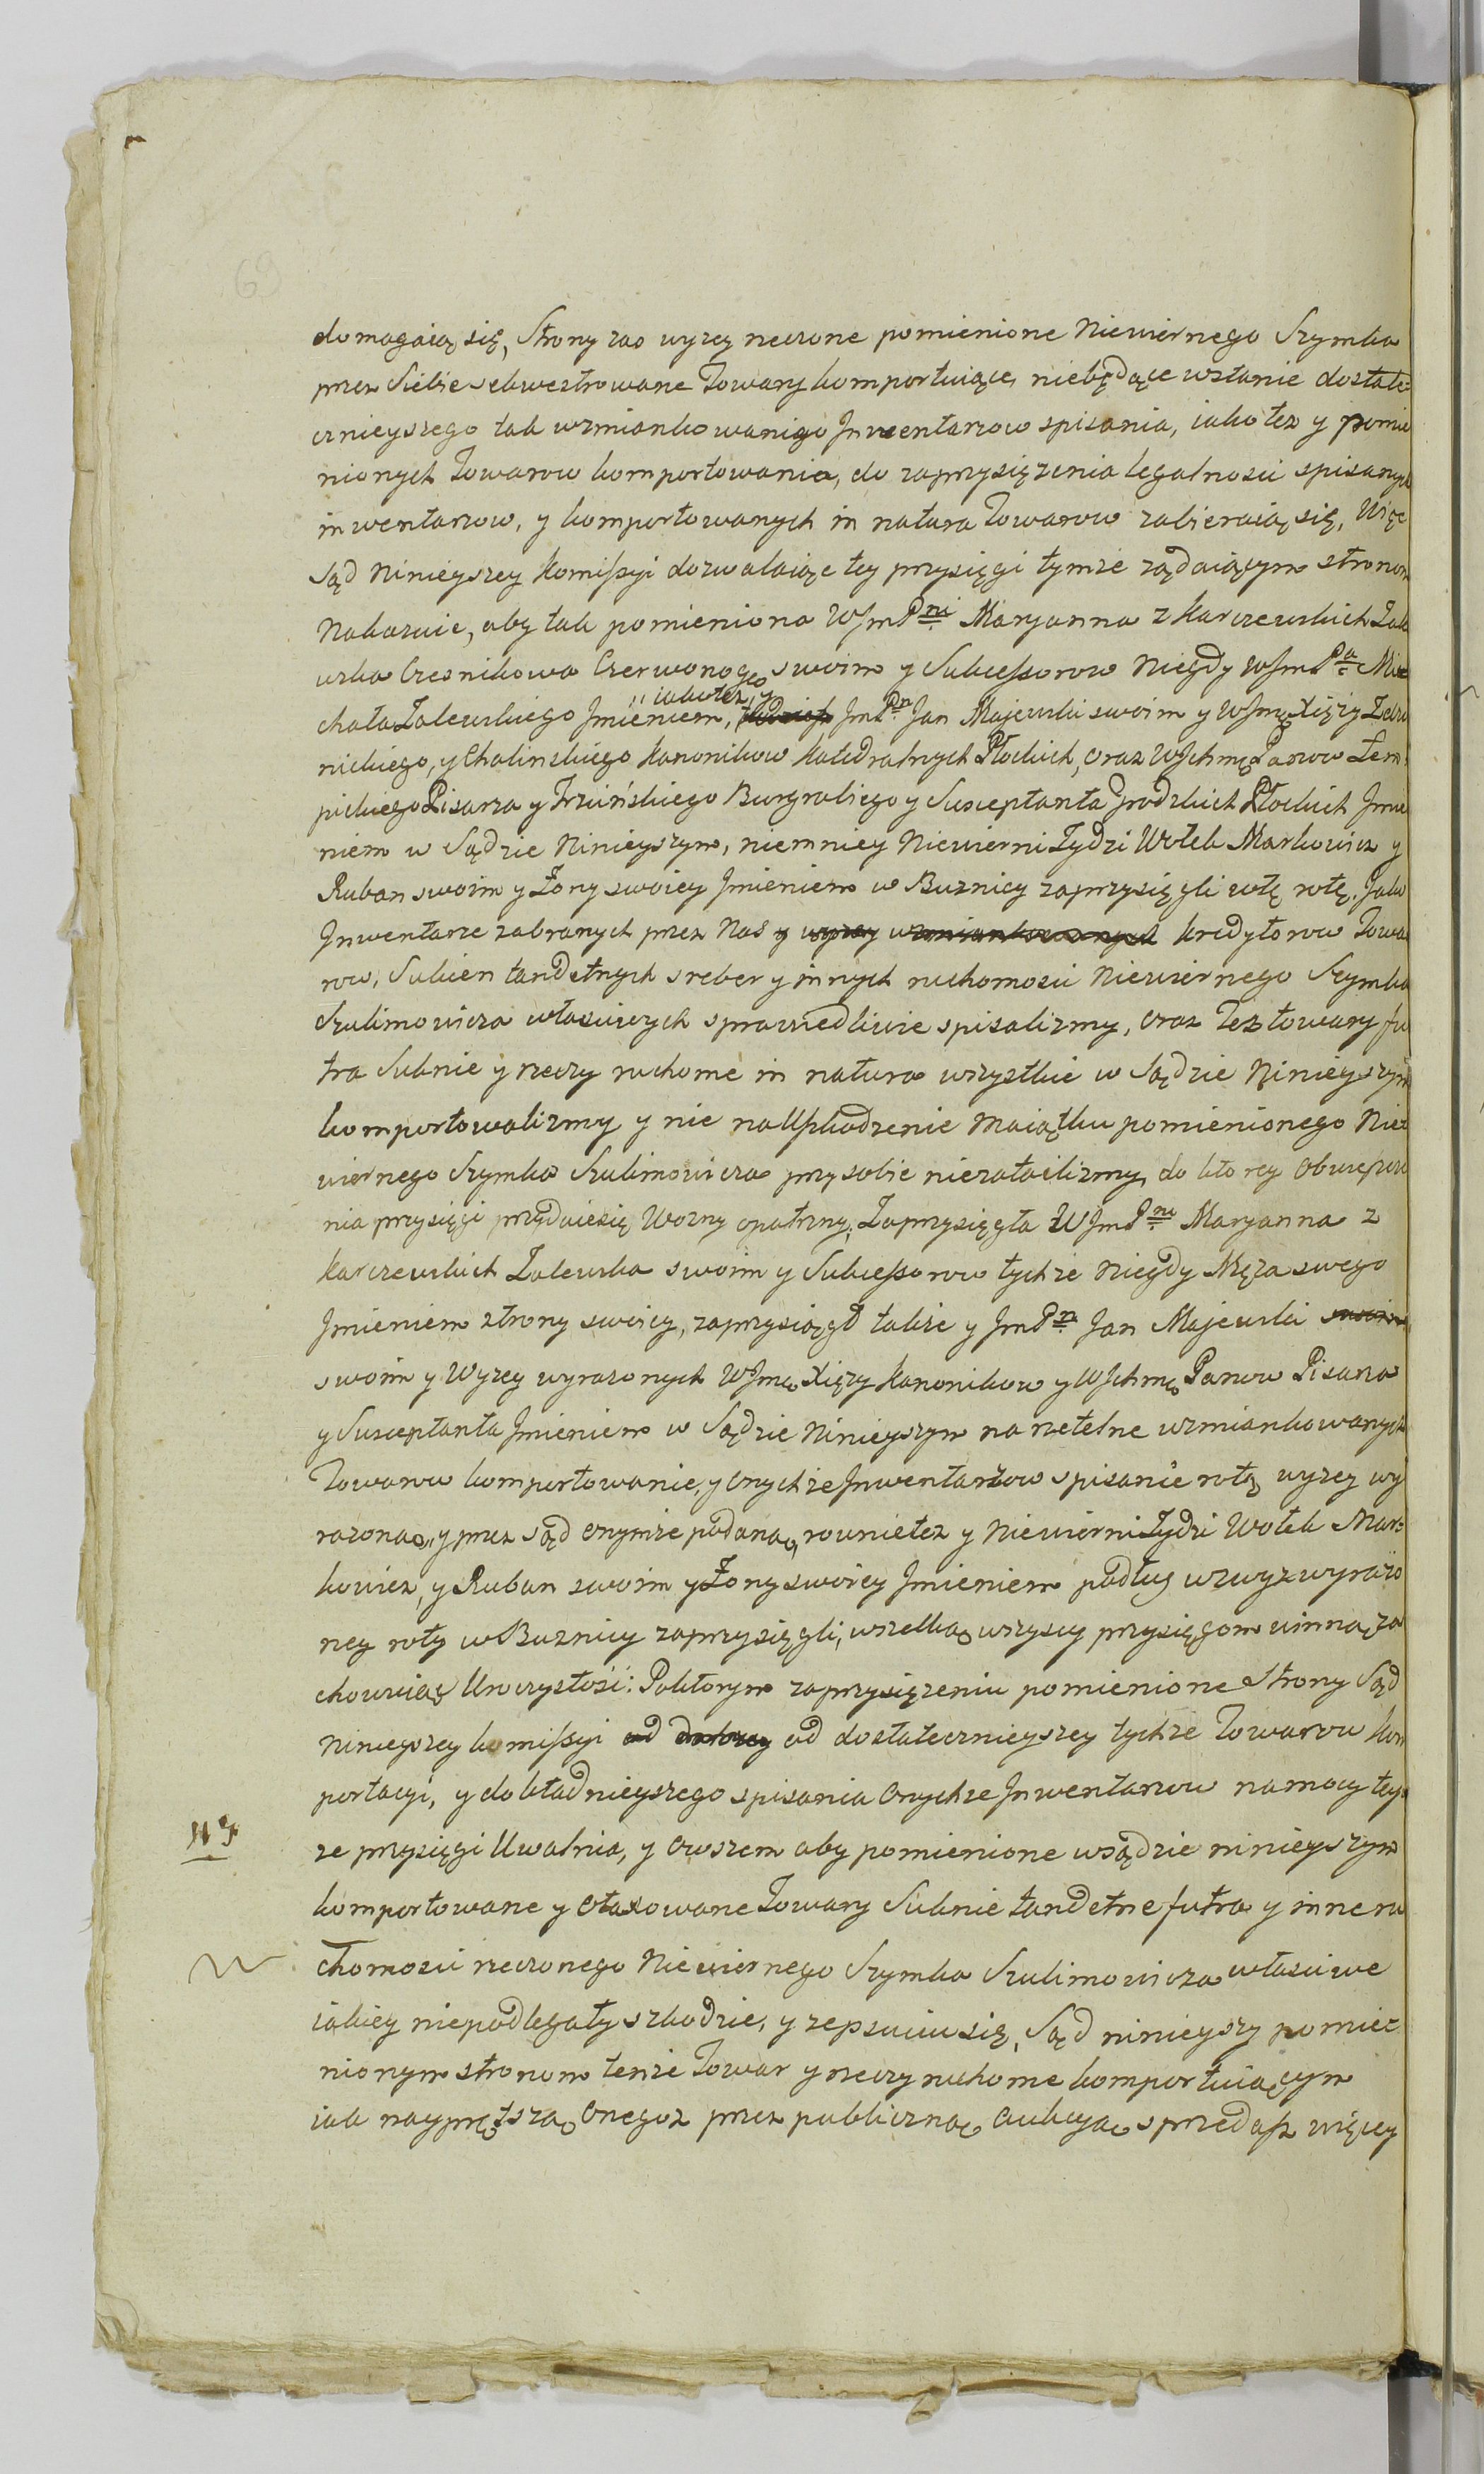 69
domagaią się, Strony zas wyzey rzeczone pomienione Niewiernego Szymka
przez Siebie sekwestrowane Towary komportuiące, niebędące wstanie dostate=
cznieyszego tak wzmiankowanigo Inwentarzow spisania, iako tez y pomie
nionych Towarow komportowania, do zaprzysięzenia legalnosci spisanych
inwentarzow, y komportowanych in natura Towarow zabieraią się, Więc
Sąd Ninieyszey Komissyi dozwalaiąc tey przysięgi tymze rządaiącym stronom
Nakazuie, aby tak pomieniona WJmPni Maryanna z Karczewskich Zale
wska Czesnikowa Czerwonogro swoim y Sukcessorow Niegdy WJmPa Mi
chała Zalewskiego Jmieniem, iakotez y JmPn Jan Majewski swoim y WJmc Xięzy Zelz
nickiego, y Chalinskiego Kanonikow Katedralnych Płockich, oraz WJchmc Panow Lem
pickiego Pisarza y Trzcińskiego Burgrabiego y Susceptanta Grodzkich Płockich Jmie
niem w Sądzie Ninieyszym, niemniey Niewierni Zydzi Wołek Markowicz y
Ruban swoim y Zony swoiey Jmieniem w Buznicy zaprzysięgli wtę rotę. Jako
Jnwentarze zabranych przez Nas y wyzey wzmiankowanych kredytorow Towa
row, Sukien tandetnych sreber y innych ruchomosci Niewiernego Szymka
Szulimowicza własciwych sprawiedliwie spisalizmy, oraz Tez towary fu
tra Suknie y rzeczy ruchome in natura wszystkie w Sądzie Ninieyszym
komportowalizmy y nie na Uszkodzenie Maiątku pomienionego Nie=
wiernego Szymka Szulimowicza przy sobie niezataiłizmy, do ktorey Obwiesz
nia przysięgi przydaiesię Wozny opatrzny. Zaprzysięgła WJmPni Maryanna z
Karczewskich Zalewska swoim y Sukcessorow tychze Niegdy Męza swego
Jmieniem ztrony swoiey, zaprzysiągł takze y JmPn Jan Majewski swoim
swoim y Wyzey wyrazonych WJmc Xięzy Kanonikow y WJchmc Panow Pisarza
y Susceptanta Jmieniem w Sądzie Ninieyszym na rzetelne wzmiankowanych
Towarow komportowanie, y onychze Jnwentarzow spisanie rotą wyzey wy
razoną, y przez Sąd onymze podaną, rownietez y Niewierni Zydzi Wołek Mar=
kowicz, y Ruban swoim y Zony swoiey Jmieniem podług wzwyz wyrazo
ney roty w Buznicy zaprzysięgli, wszelką wszyscy przysięgom winną za
chowuiąc Uroczystość: Poktorym zaprzysięzeniu pomienione Strony Sąd
Ninieyszey komissyi od dostatecznieyszey tychze Towarow kom
portacyi, y dokładnieyszego spisania Onychze Jnwentarzow na mocy tey
ze przysięgi Uwalnia, y owszem aby pomienione wsądzie ninieyszym
komportowane y otaxowane Towary Suknie tandetne futra y inne ru
chomosci rzeczonego Niewiernego Szymka Szulimowicza własciwe
iakiey niepodlegały szkodzie, y zepsuciu się, Sąd ninieyszy pomie=
nionym stronom tenze Towar y rzeczy ruchome komportuiącym
iak nayprętszą onegoz przez publiczną aukcyą sprzedasz więcey